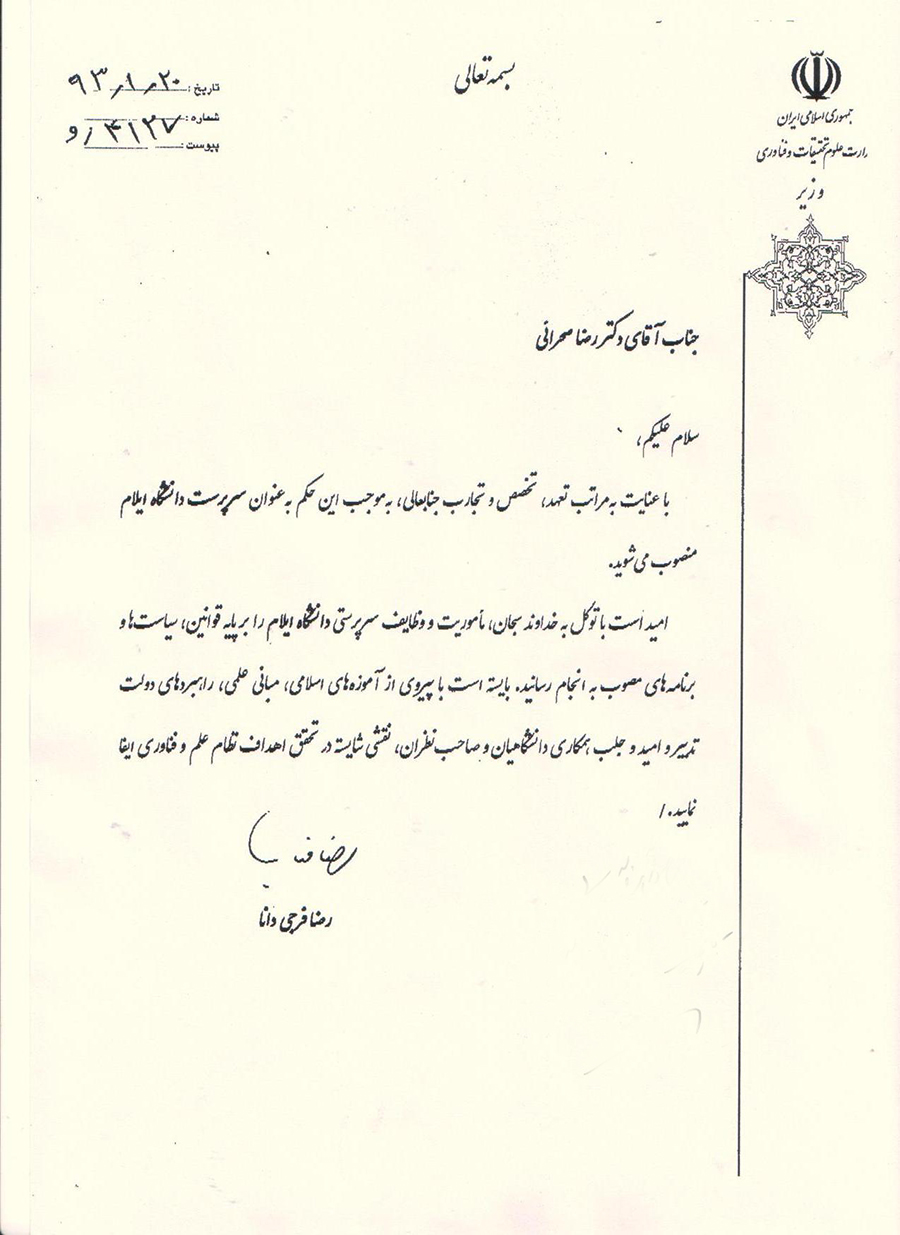 بسمه تعالی
جمهوری اسلامی ایران
وزارت علوم تحقیقات و فناوری
وزیر
تاریخ: ۹۳/۱/۲۰
شماره: ۴۱۲۷/و
پیوست:
جناب آقای دکتر رضا صحرائی
سلام علیکم،
با عنایت به مراتب تعهد، تخصص و تجارب جنابعالی، به موجب این حکم به عنوان سرپرست دانشگاه ایلام
منصوب می شوید.
امید است با توکل به خداوند سبحان، مأموریت و وظایف سرپرستی دانشگاه ایلام را بر پایه قوانین، سیاست ها و
برنامه های مصوب به انجام رسانید. بایسته است با پیروی از آموزه های اسلامی، مبانی علمی، راهبردهای دولت
تدبیر و امید و جلب همکاری دانشگاهیان و صاحب نظران، نقشی شایسته در تحقق اهداف نظام علم و فناوری ایفا
نمایید./
رضا فرجی دانا